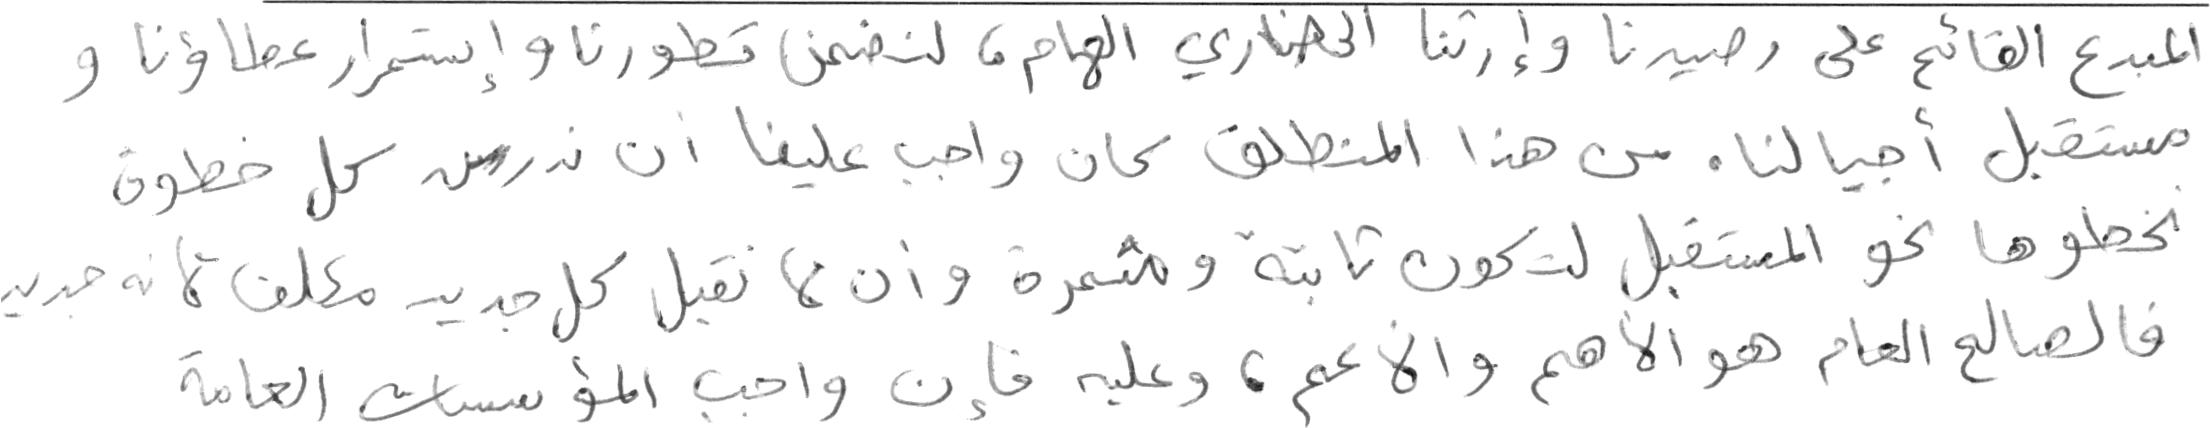 المبدع القائم على رصيدنا وإرثنا الحضاري الهام، لنضمن تطورنا وإستمرار عطاؤنا و
مستقبل أجيالنا. من هذا المنطلق كان واجب علينا أن ندرس كل خطوة
نخطوها نحو المستقبل لتكون ثابتة ومثمرة وأن لا نقبل كل جديد مكلف لأنه جديد
فالصالح العام هو الأهم والأعم، وعليه فإن واجب المؤسسات العامة